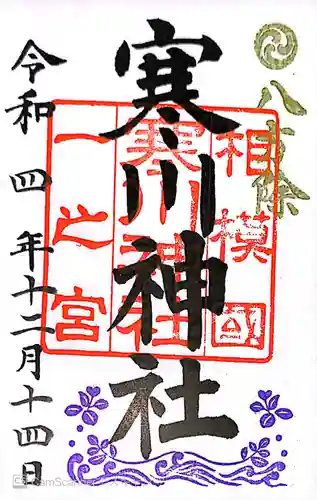 八方除
相模國
一之宮
寒川神社
寒川神社
令和四年十二月十四日
CamScanner